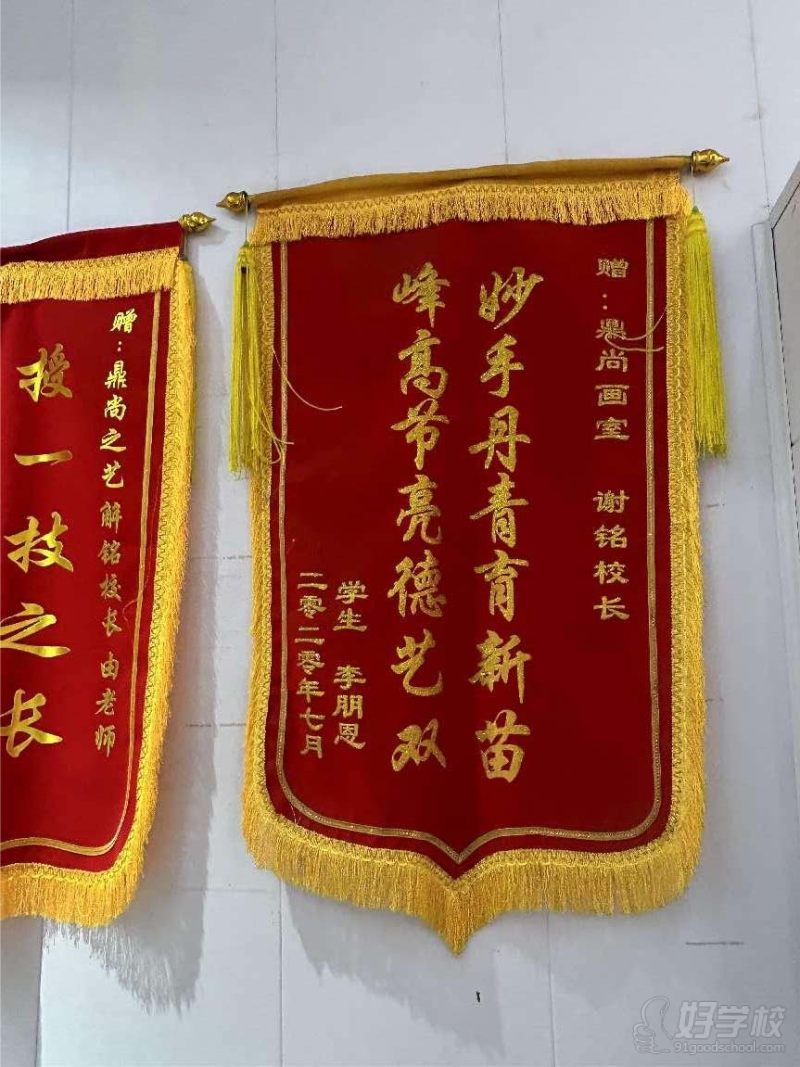 赠：鼎尚画室 谢铭校长
妙手丹青育新苗
峰高节亮德艺双
学生 李朋恩
二零二零年七月
赠：鼎尚之艺 解铭校长 由老师
授一技之长
好学校
91goodschool.com